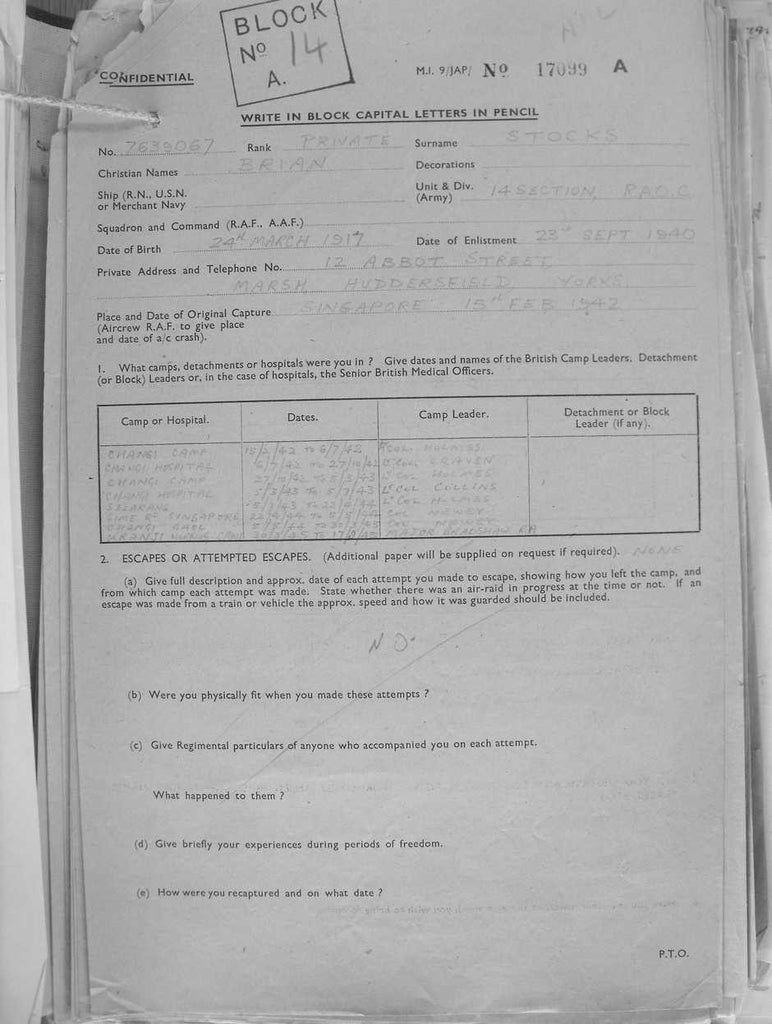 BLOCK
No 14
A.
CONFIDENTIAL
M.I. 9/JAP/ No 17099 A
WRITE IN BLOCK CAPITAL LETTERS IN PENCIL
No. 7639067 Rank PRIVATE Surname STOCKS
Christian Names BRIAN Decorations
Ship (R.N., U.S.N. or Merchant Navy
Unit & Div. (Army) 14 SECTION, RAOC
Squadron and Command (R.A.F., A.A.F.)
Date of Birth 24th MARCH 1917 Date of Enlistment 23rd SEPT 1940
Private Address and Telephone No. 12 ABBOT STREET,
MARSH, HUDDERSFIELD, YORKS.
Place and Date of Original Capture SINGAPORE 15th FEB 1942
(Aircrew R.A.F. to give place
and date of a/c crash).
1. What camps, detachments or hospitals were you in ? Give dates and names of the British Camp Leaders, Detachment
(or Block) Leaders or, in the case of hospitals, the Senior British Medical Officers.
Camp or Hospital. Dates. Camp Leader. Detachment or Block Leader (if any).
CHANGI CAMP 15/2/42 TO 6/7/42 Lt COL HOLMES
CHANGI HOSPITAL 6/7/42 TO 27/10/42 Lt COL CRAVEN
CHANGI CAMP Lt COL HOLMES
CHANGI HOSPITAL Lt COL COLLINS
SELARANG Lt COL HOLMES
SINGAPORE COL NEWEY
CHANGI GAOL COL NEWEY
KRANJI MAJOR BRADSHAW RA
2. ESCAPES OR ATTEMPTED ESCAPES. (Additional paper will be supplied on request if required). NONE
(a) Give full description and approx. date of each attempt you made to escape, showing how you left the camp, and
from which camp each attempt was made. State whether there was an air-raid in progress at the time or not. If an
escape was made from a train or vehicle the approx. speed and how it was guarded should be included.
NO.
(b) Were you physically fit when you made these attempts ?
(c) Give Regimental particulars of anyone who accompanied you on each attempt.
What happened to them ?
(d) Give briefly your experiences during periods of freedom.
(e) How were you recaptured and on what date ?
P.T.O.